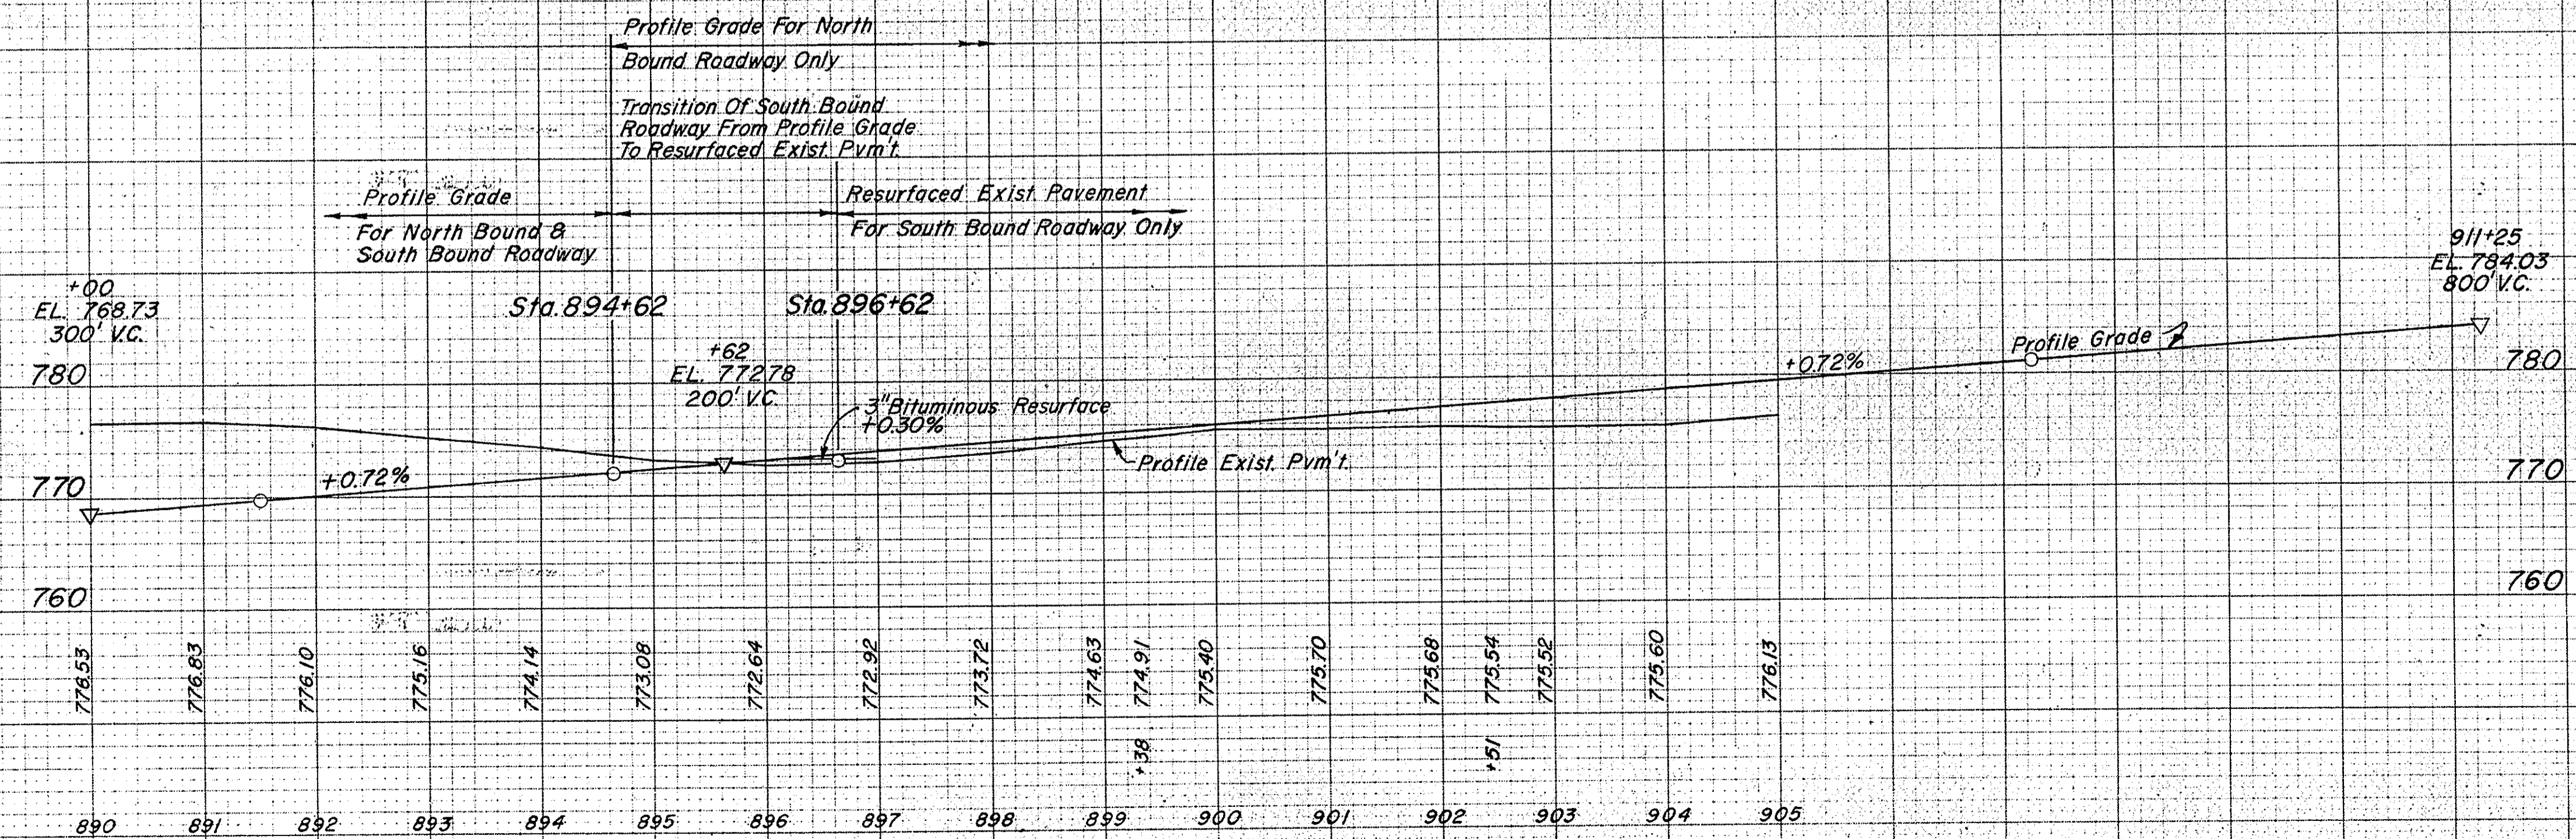 Profile Grade For North
Bound Roadway Only
Transition Of South Bound
Roadway From Profile Grade
To Resurfaced Exist. Pvm't.
Profile Grade
For North Bound &
South Bound Roadway
Resurfaced Exist. Pavement
For South Bound Roadway Only
+00
EL. 768.73
300' V.C.
Sta. 894+62
Sta. 896+62
+62
EL. 772.78
200' V.C.
911+25
EL. 784.03
800' V.C.
780
3" Bituminous Resurface
+0.30%
+0.72%
Profile Grade
780
770
+0.72%
Profile Exist. Pvm't.
770
760
760
776.53
776.83
776.10
775.16
774.14
773.08
772.64
772.92
773.72
774.63
774.91
775.40
775.70
775.68
775.54
775.52
775.60
776.13
+38
+51
890 891 892 893 894 895 896 897 898 899 900 901 902 903 904 905